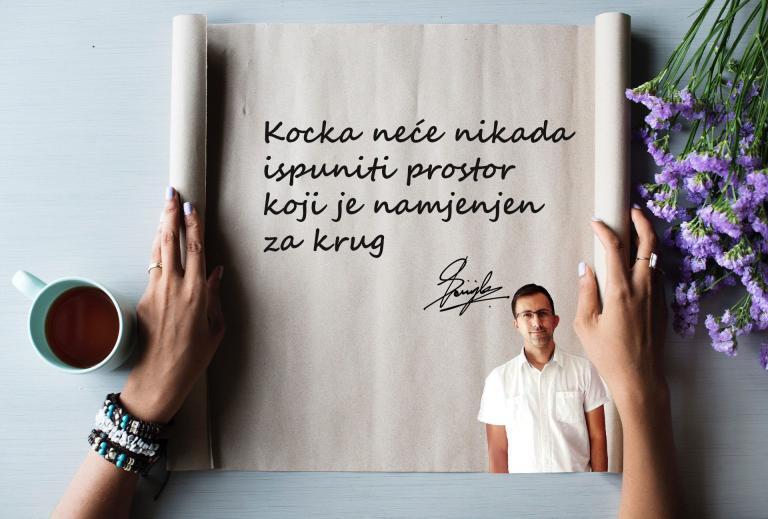 Kocka neće nikada
ispuniti prostor
koji je namjenjen
za krug